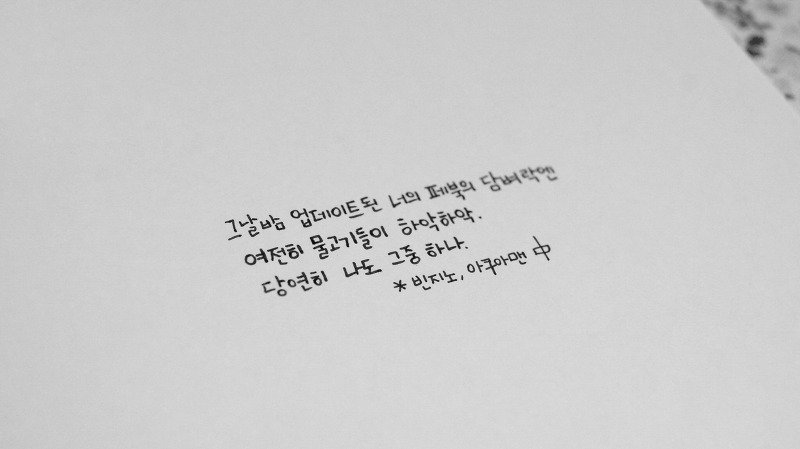 그날밤 업데이트된 너의 페북의 담벼락엔
여전히 물고기들이 하악하악.
당연히 나도 그중 하나.
* 빈지노, 아쿠아맨 中